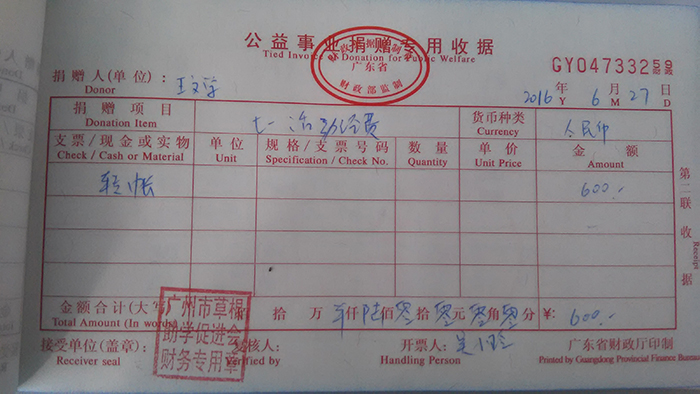 公益事业捐赠专用收据
Tied Invoice of Donation for Public Welfare
财政票据监制章
广东省
财政部监制
GY04733259
捐赠人(单位):
Donor
2016年 6月 27日
Y M D
捐赠项目 七一活动经费 货币种类 人民币
Donation Item Currency
支票/现金或实物 单位 规格/支票号码 数量 单价 金额
Check / Cash or Material Unit Specification / Check No. Quantity Unit Price Amount
转帐 600.-
金额合计(大写) 拾 万 仟陆佰零拾零元零角零分 ¥: 600.-
Total Amount (In words)
广州市草根
助学促进会
财务专用章
接受单位(盖章): 复核人: 开票人: 广东省财政厅印制
Receiver seal Verified by Handling Person Printed by Guangdong Provincial Finance Bureau
第二联 收据
Receipt